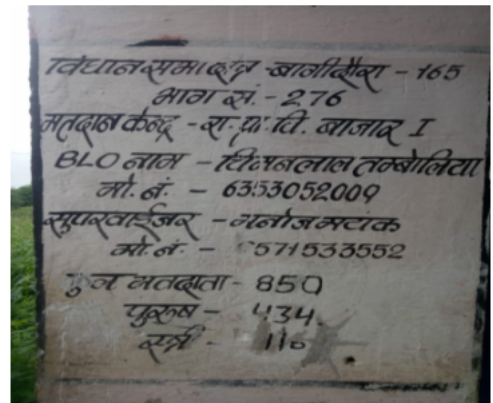 विधानसभा क्षेत्र - बागीदौरा - 165
भाग सं. - 276
मतदान केन्द्र - रा. प्रा. वि. बाजार I
BLO नाम - चिमनलाल तम्बोलिया
मो. नं. - 6353052009
सुपरवाईजर - मनोज मटांक
मो. नं. -
कुल मतदाता - 850
पुरुष - 434
स्त्री -